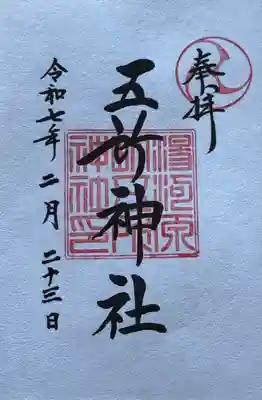 奉拝
五所神社
令和七年 二月 二十三日